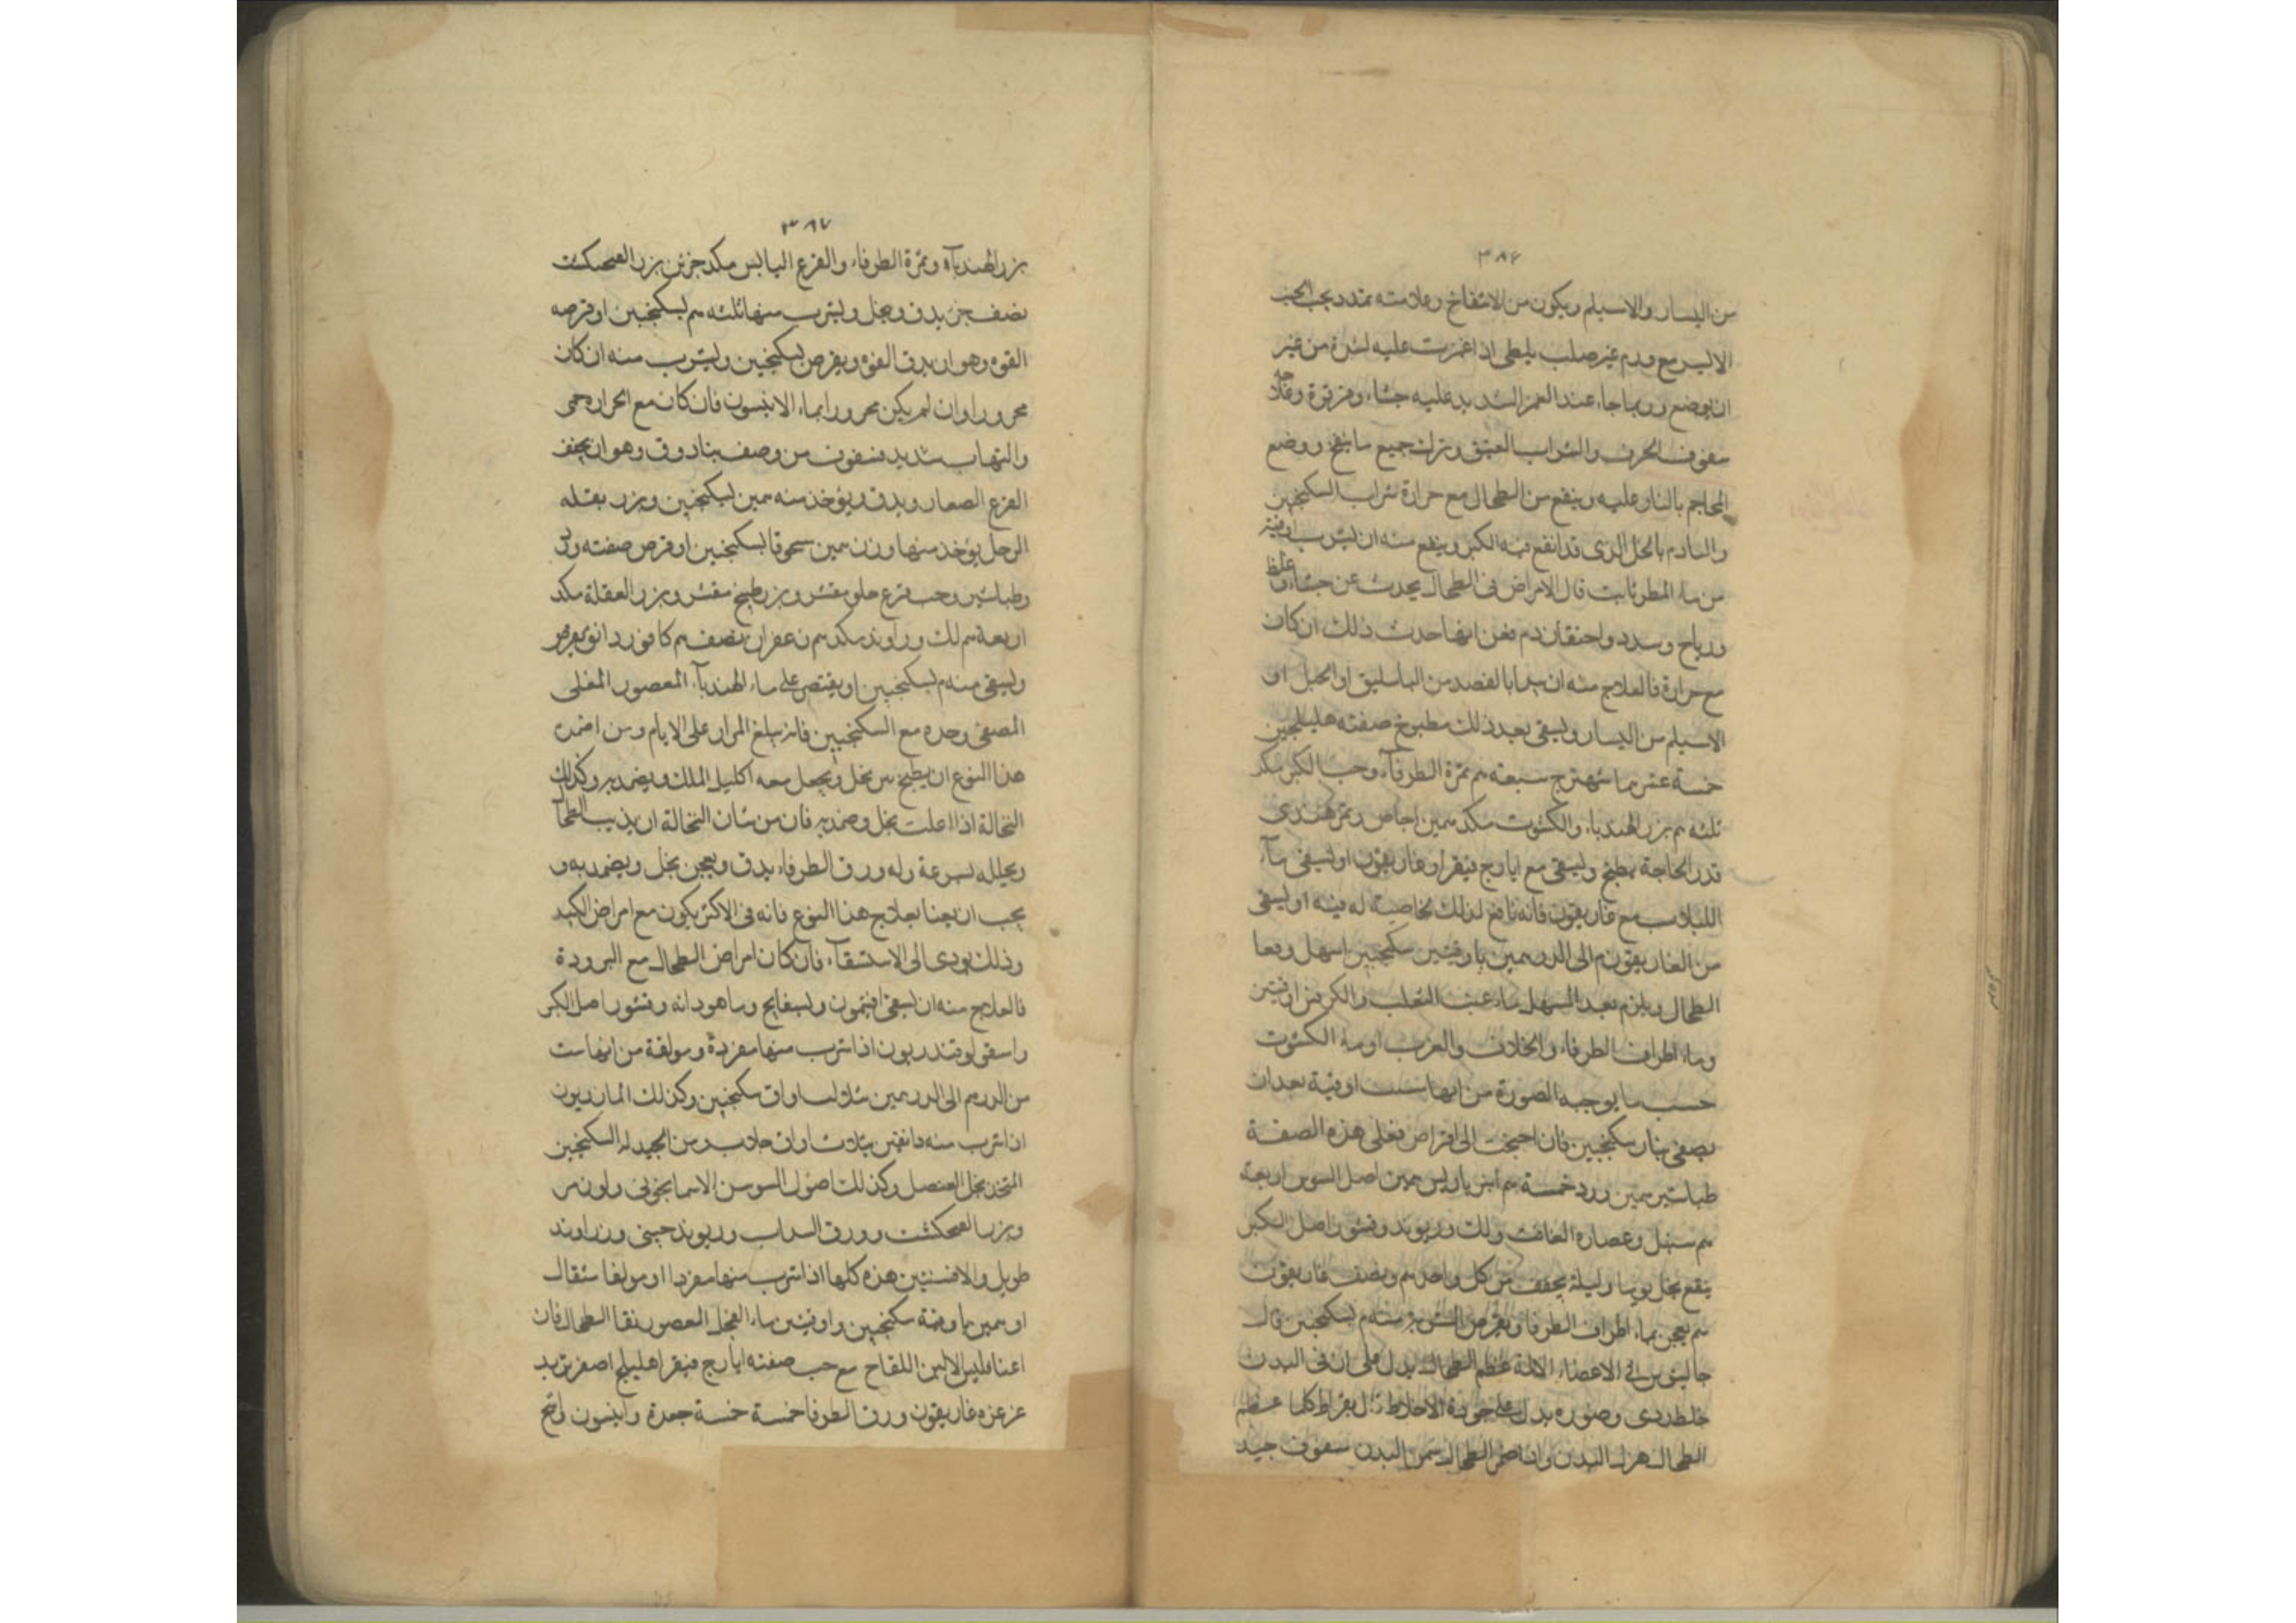 ٣٨٦
من اليسار والاسيلم ويكون من الانتفاخ وعلامته تمدد بجب الجنب
الايسر مع ورم غير صلب يلطى اذا غمزت عليه لسرة من غير
ان يوضع وربما جاء عند الغمز الشديد عليه جشاء وقرقرة وعلاجه
سفوف الحرف والشراب العتيق وترك جميع ما ينفخ ووضع
المحاجم بالنار عليه وينفع من الطحال مع حرارة شراب السكنجبين
والتادم بالخل الذى قد انقع فيه الكبر وينفع منه ان يشرب اوقية
من ماء قال الامراض فى الطحال يحدث عن جشاء وغلظ
ورياح وسدد واحتقان دم فعن ايها حدث ذلك ان كان
مع حرارة فالعلاج منه ان يبدا بالفصد من الباسليق او الحبل او
الاسيلم من اليسار ويسقى بعد ذلك مطبوخ صفته هليلجين
خمسة عشر شهترج سبعة م ثمرة الطرفآء وحب الكبر مكد
ثلثه م بزر الهندباء والكشوت مكد مين اجاص وتمر هندى
قدر الحاجة يطبخ ويسقى مع ايارج فيقرا وغاريقون او يسقى مآء
اللبلاب مع غاريقون فانه نافع لذلك لخاصية له فيه او يسقى
من الغاريقون م الى الدرهمين باوقيتين سكنجبين اسهل ونفعا
الطحال ويلزم بعد السهل ماء عنب الثعلب والكرفس اوقيتين
وماء اطراف الطرفاء والخلاف والغرب او ماء الكشوت
حسب ما يوجبه الصورة من ايها شئت اوقية بعد ان
يصفى بنار سكنجبين فان احتجت الى اقراص فعلى هذه الصفة
طباشير مين ورد خمسة م انبرباريس مين اصل السوس اربعة
م سنبل وعصارة الغافث ولك وريوند وقشور اصل الكبر
ينقع بخل يوما وليلة يجفف من كل واحد م ونصف غاريقون
م يعجن بماء اطراف الطرفا ويقرص الشربة منه م بسكنجبين قال
جالينوس فى الاعضاء الالة عظم الطحال يدل على ان فى البدن
خلط ردى وضموره يدل على جودة الاخلاط قال بقراط كلما عظم
الطحال هزل البدن واذا ضمر الطحال سمن البدن سفوف جيد
٣٨٧
بزر الهندبآء وثمرة الطرفاء والقرع اليابس مكد جزئين بزر الفنجنكشت
نصف جزء يدق وينخل ويشرب منها ثلثه م بسكنجبين او قرصه
الفوه وهو ان يدق الفوة ويقرص بسكنجبين ويشرب منه ان كان
محرورا وان لم يكن محرورا بماء الانيسون فان كان مع الحرارة حمى
والتهاب شديد فسفوف من وصف بنادوق وهو ان يجفف
القرع الصغار ويدق ويؤخذ منه مين بسكنجبين وبزر بقلة
الرجل يؤخذ منها وزن مين سحوقا بسكنجبين او قرص صفته ورد
وطباشير وحب قرع حلو مقشر وبزر بطيخ مقشر وبزر البقلة مكد
اربعة م لك وراوند مكد م زعفران نصف م كافور دانق يقرص
ويسقى منه م بسكنجبين او يقتصر على ماء الهندبآء المعصور المغلى
المصفى وحده مع السكنجبين فانه يبلغ المراد على الايام ومن اضمدة
هذا النوع ان يطبخ تين بخل ويجعل معه اكليل الملك ويضمد به وكذلك
النخالة اذا اغليت بخل وضمد به فان من شان النخالة ان يذيب الطحال
ويحلله بسرعة وله ورق الطرفاء يدق ويعجن بخل ويضمد به و
يجب ان يعنا بعلاج هذا النوع فانه فى الاكثر يكون مع امراض الكبد
وذلك يودى الى الاستسقآء فان كان امراض الطحال مع البرودة
فالعلاج منه ان يسقى افتيمون وبسفايج وماهودانه وقشور اصل الكبر
واسقولوقندريون اذا شرب منها مفردة ومولفة من ايها شئت
من الدرهم الى الدرهمين بثلث اواق سكنجبين وكذلك المازريون
اذا شرب منه دانقين بثلاث اواق جلاب ومن الجيد له السكنجبين
المتخذ بخل العنصل وكذلك اصول السوسن الاسمانجونى
وبزر الفنجنكشت وورق السداب وريوند صينى وزراوند
طويل والافسنتين هذه كلها اذا شرب منها مفردا او مولفا مثقال
او مين باوقية سكنجبين واوقيتين ماء الفجل المعصور نقا الطحال فان
اعنا فليس الا لبن اللقاح مع حب صفته ايارج فيقرا هليلج اصفر تربد
عزعزه غاريقون ورق الطرفا خمسة خمسة جعدة وانيسون